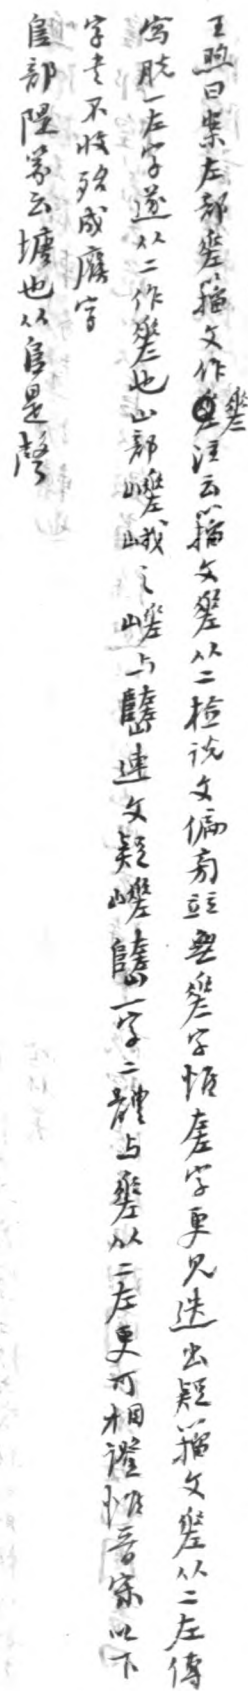 王煦曰案左部𢀩籀文作𢀩注云籀文𢀩从二檢說文偏旁並無𢀩字惟差字更見迭出疑籀文𢀩从二左傳
寫脫一左字遂从二作𢀩也山部嵯峨之嵯與連文疑嵯一字二體與𢀩从二左更可相證惟晉宋以下
字書不收殆成廢字
𨸏部隄篆云塘也从𨸏是聲